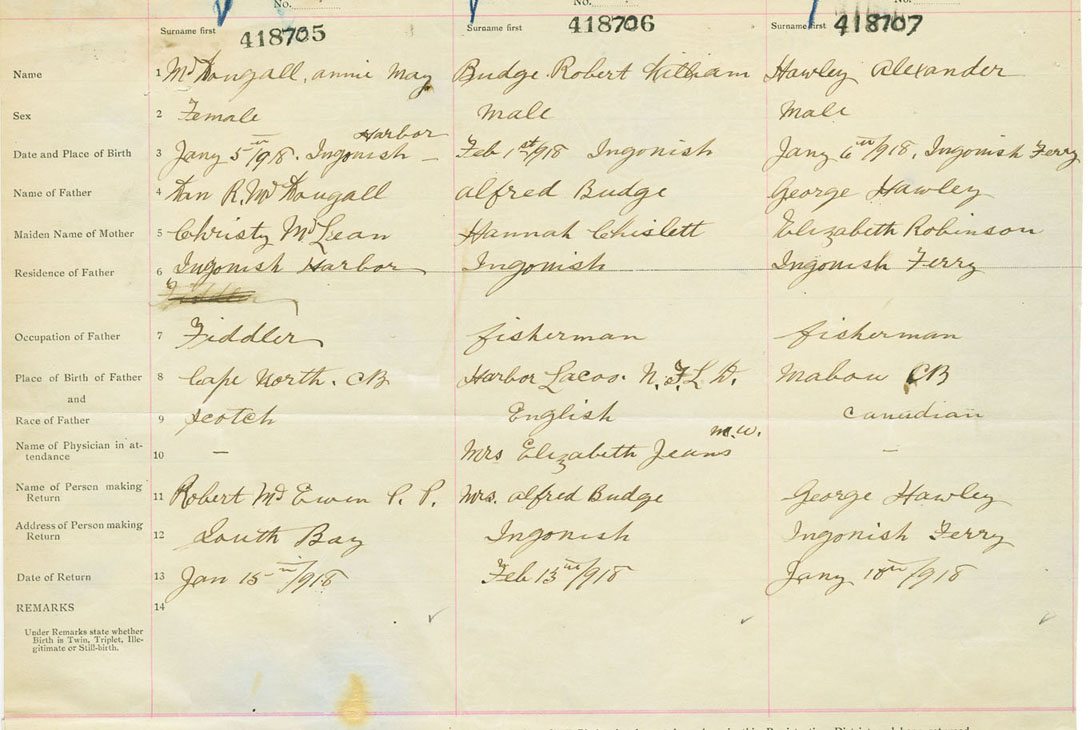 No. No. No.
Surname first 418705 Surname first 418706 Surname first 418707
Name 1 McDougall, annie May Budge Robert William Hawley Alexander
Sex 2 Female Male Male
Harbor
Date and Place of Birth 3 Jany 5th/918. Ingonish – Feb 1st/918 Ingonish Jany 6th/918. Ingonish Ferry
Name of Father 4 Dan R. McDougall alfred Budge George Hawley
Maiden Name of Mother 5 Christy McLean Hannah Chislett Elizabeth Robinson
Residence of Father 6 Ingonish Harbor Ingonish Ingonish Ferry
Occupation of Father 7 Fiddler fisherman fisherman
Place of Birth of Father 8 Cape North. CB Harbor N.F.L.D. Mabou CB
and
Race of Father 9 Scotch English Canadian
m.w.
Name of Physician in at-
tendance 10 – Mrs Elizabeth Jeans –
Name of Person making
Return 11 Robert McEwen P. P. Mrs. alfred Budge George Hawley
Address of Person making
Return 12 South Bay Ingonish Ingonish Ferry
Date of Return 13 Jan 15th/918 Feb 13th/918 Jany 18th/918
REMARKS 14
Under Remarks state whether
Birth is Twin, Triplet, Ille-
gitimate or Still-birth.